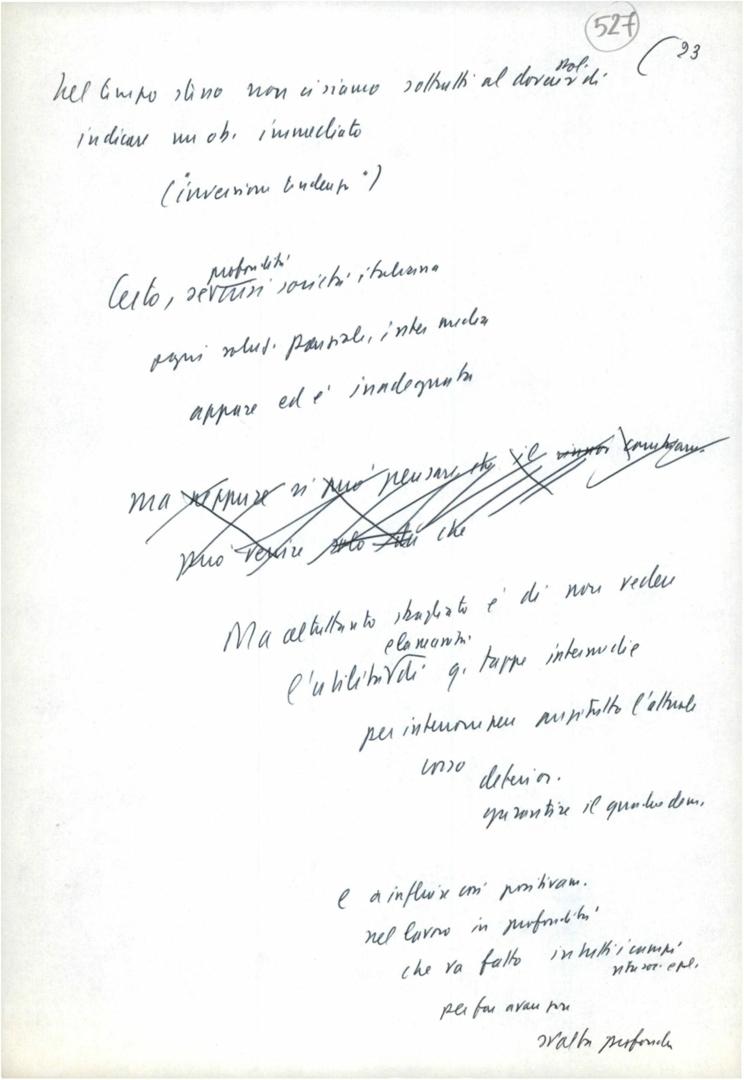 527
23
Nel tempo stesso non ci siamo sottratti al dovere pol. di
indicare un ob. immediato
("inversione tendenza")
profondità
Certo, crisi società italiana
ogni soluz. parziale, intermedia
appare ed è inadeguata
Ma neppure si può pensare che il
può venire solo che
Ma altrettanto sbagliato è di non vedere
l'utilità di q. tappe intermedie
per interrompere anzitutto l'attuale
corso
deterior.
garantire il quadro dem.
e a influire così positivam.
nel lavoro in profondità
che va fatto in tutti i campi
per far avanzare
svolta profonda